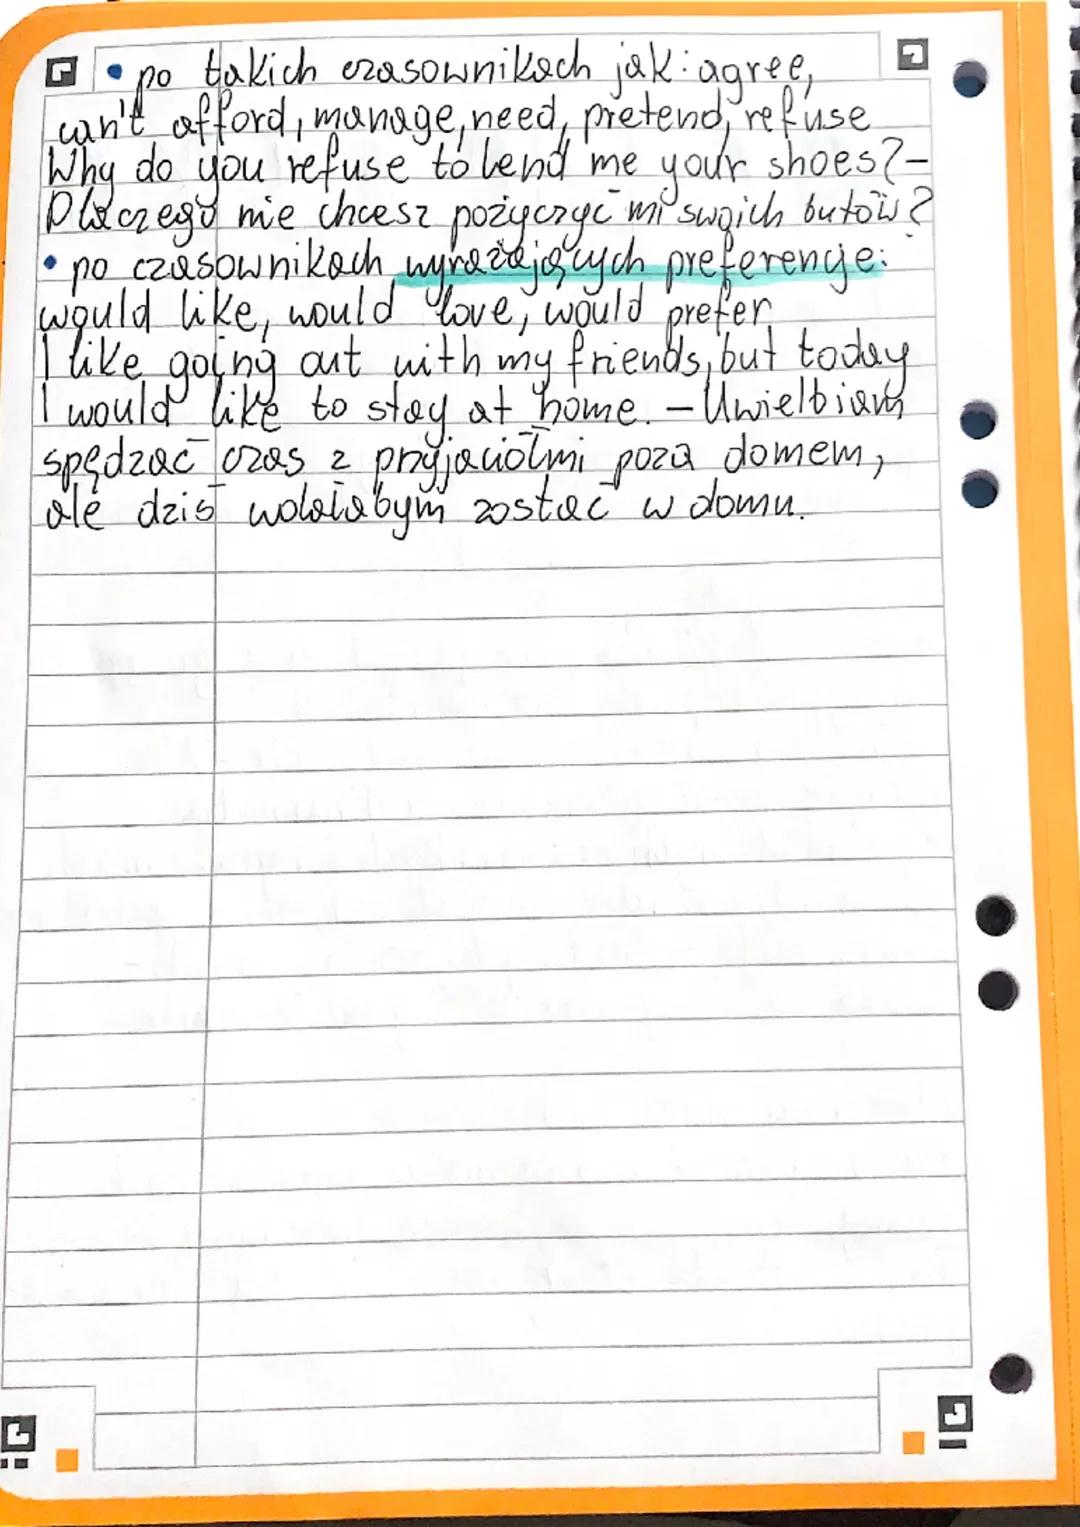 • po takich czasownikach jak: agree,
can't afford, manage, need, pretend, refuse
Why do you refuse to lend me your shoes? -
Dlaczego nie chcesz pożyczyć mi swoich butów?
• po czasownikach wyrażających preferencje:
would like, would love, would prefer
I like going out with my friends, but today
I would like to stay at home. - Uwielbiam
spędzać czas z przyjaciółmi poza domem,
ale dziś wolałabym zostać w domu.